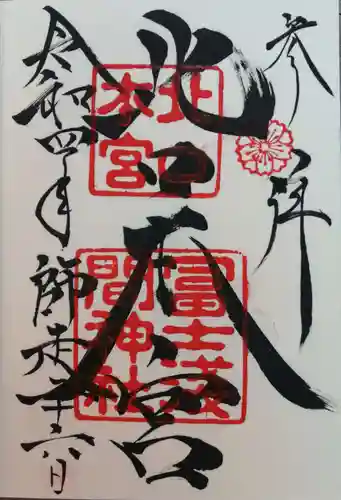 参拝
北口本宮
令和四年 師走二十六日
北口
本宮
冨士浅
間神社